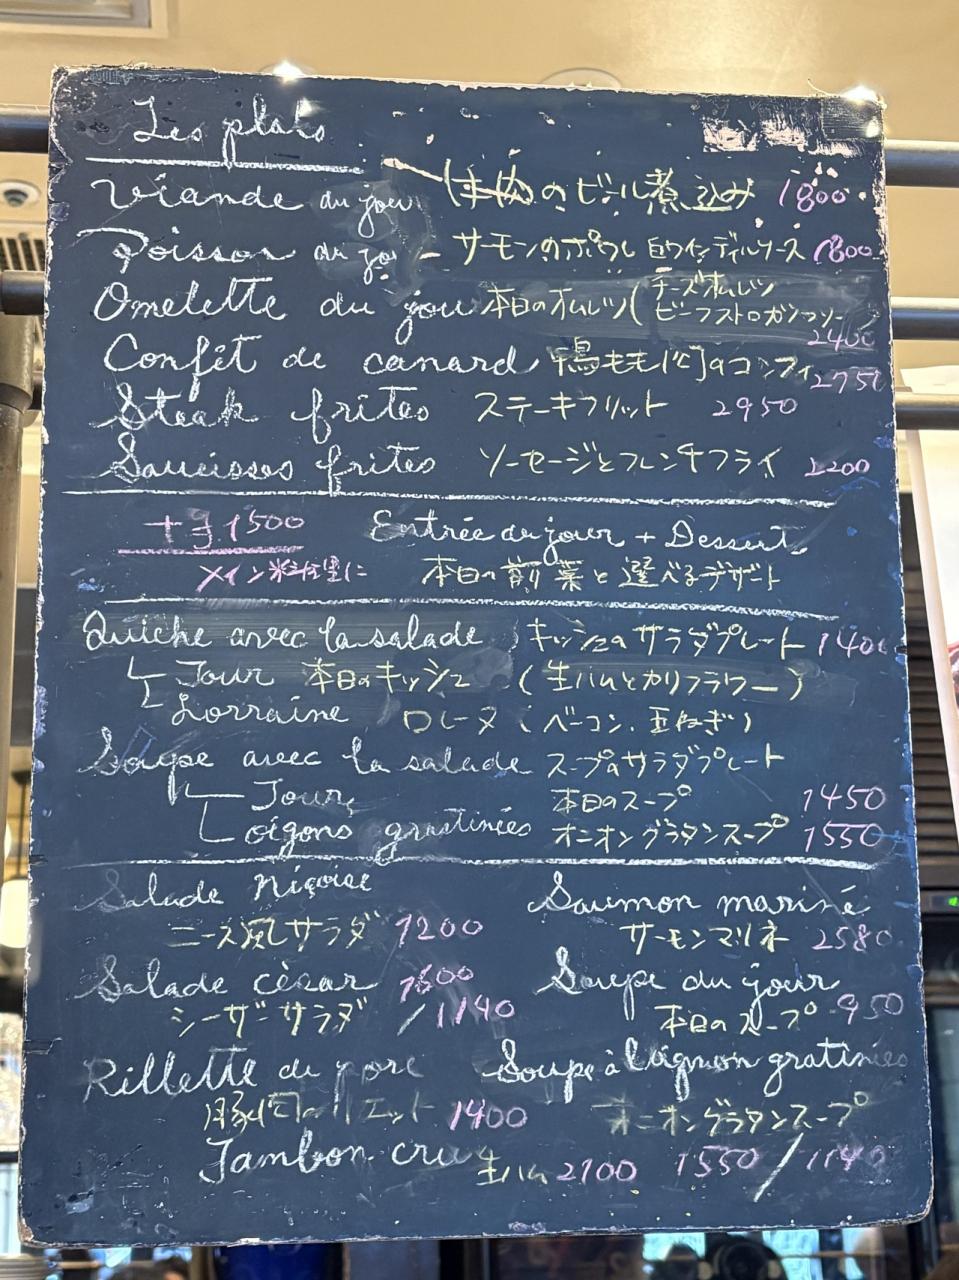 Les plats
Viande du jour 牛肉のビール煮込み 1800
Poisson du jo サーモンのポワレ 白ワインディルソース 1800
Omelette du jou 本日のオムレツ(チーズオムレツ
ビーフストロガノフソー
2400
Confit de canard 鴨もも肉のコンフィ 2750
Steak frites ステーキフリット 2950
Saucisses frites ソーセージとフレンチフライ 2200
+ 1500 Entrée du jour + Dessert
メイン料理に 本日の前菜と選べるデザート
Quiche avec la salade キッシュのサラダプレート 1400
Jour 本日のキッシュ (生ハムとカリフラワー)
Lorraine ロレーヌ(ベーコン、玉ねぎ)
Soupe avec la salade スープのサラダプレート
Jour 本日のスープ 1450
oigons gratinées オニオングラタンスープ 1550
Salade Niçoise
ニース風サラダ 1200
Saumon mariné
サーモンマリネ 2580
Salade cèsar 1600
シーザーサラダ /1140
Soupe du jour
本日のスープ 950
Rillette de porc
豚肉のリエット 1400
Soupe à loignon gratinées
オニオングラタンスープ
1550/1140
Jambon cru 生ハム 2100